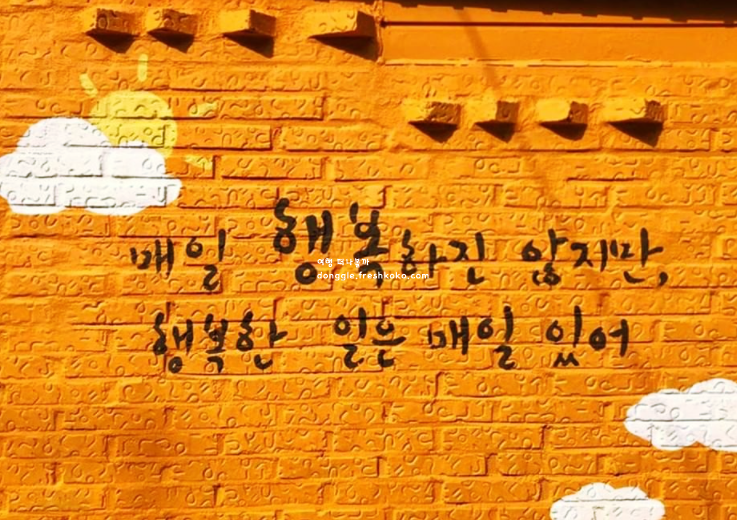 매일 행복하진 않지만,
여행 떠나볼까
donggle.freshkoko.com
행복한 일은 매일 있어